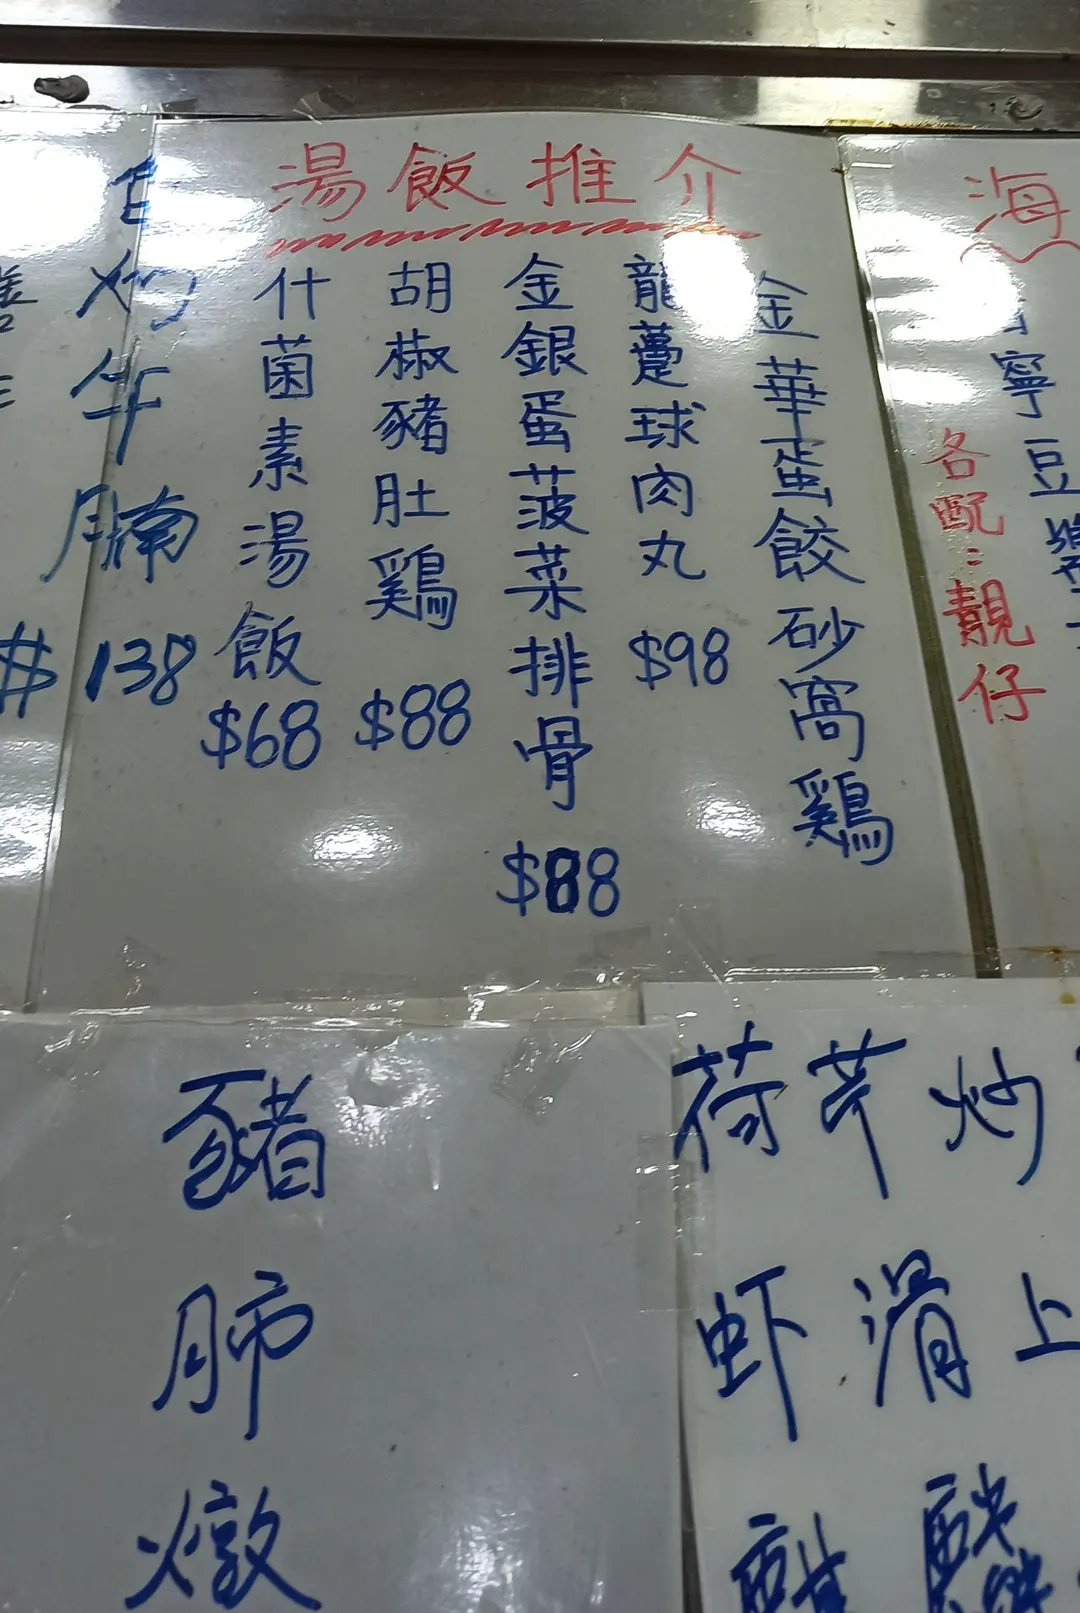 湯飯推介
金華蛋餃砂窩鷄
龍躉球肉丸
$98
金銀蛋菠菜排骨
$88
胡椒豬肚鷄
$88
什菌素湯飯
$68
灼牛腩
$138
海
寧豆
各配:靚仔
豬肺燉
荷芹炒
虾滑上